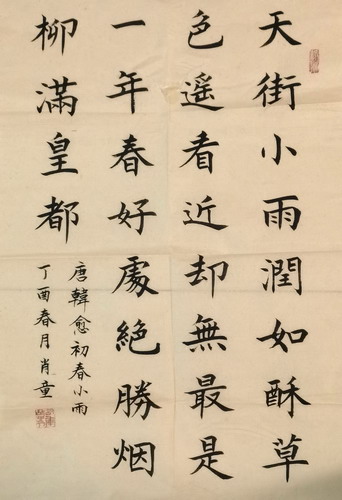 天街小雨潤如酥草
色遥看近却無最是
一年春好處絕勝烟
柳滿皇都
唐韓愈初春小雨
丁酉春月肖童